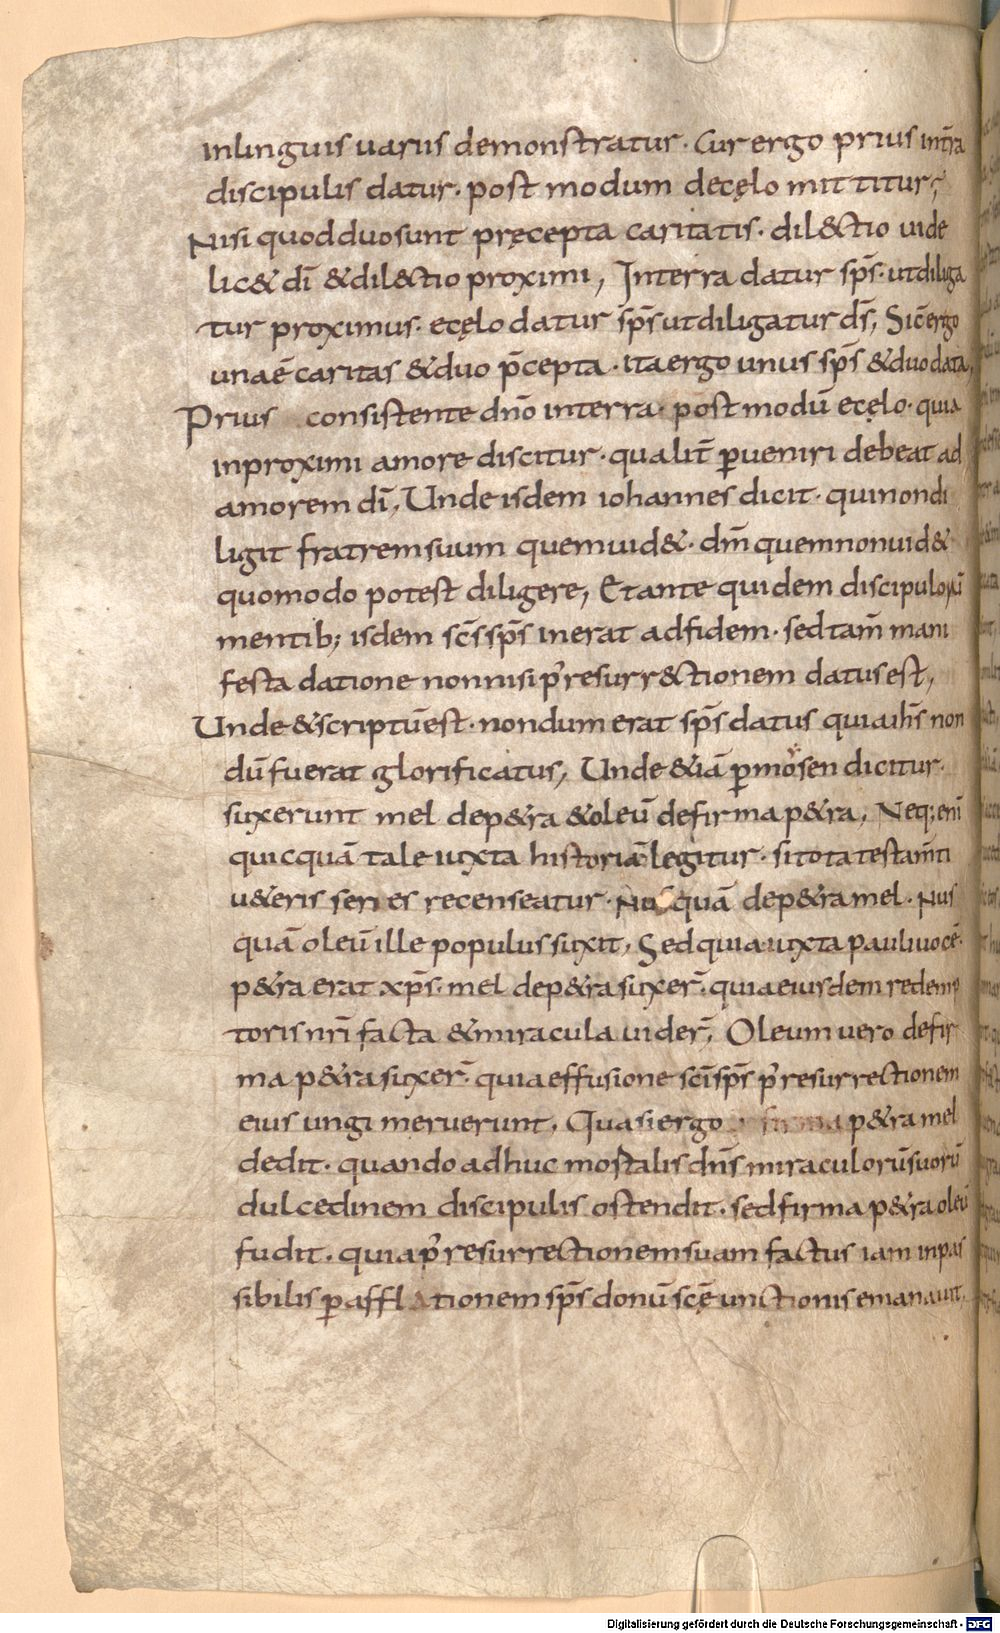 inlinguis uariis demonstratur· Cur ergo prius int̄ra
discipulis datur· post modum decęlo mittitur;
Nisi quod duo sunt pręcepta caritatis· dil&ctio uide
lic& dī &dil&ctio proximi, Interra datur sp̄s· utdiliga
tur proximus· ecęlo datur sp̄s utdiligatur ds̄, Sic̄ ergo
unaē caritas &duo p̄cepta· itaergo unus sp̄s &duo data,
Prius consistente dn̄o interra· post modū ecęlo· quia
inproximi amore discitur· qualit̄ ꝑueniri debeat ad
amorem dī, Unde isdem iohannes dicit· quinondi
ligit fratrem suum quemuid&· dm̄ quemnonuid&
quomodo potest diligere, Et ante quidem discipuloꝝ
mentib; isdem sc̄s sp̄s inerat adfidem· sed tam̄ mani
festa datione nonnisi p̄ resurr&ctionem datus est,
Unde &scriptū est· nondum erat sp̄s datus quia ih̄s non
dū fuerat glorificatus, Unde &iā ꝑ moysen dicitur·
suxerunt mel dep&ra &oleū defirma p&ra, Neq; enī
quicquā tale iuxta historiā legitur· si tota testam̄ti
u&eris series recenseatur· Nusquā dep&ra mel· Nus
quā oleū ille populus suxit, Sed quia iuxta pauli uocē·
p&ra erat xp̄s· mel dep&ra suxer̄· quia eiusdem redemp
toris nr̄i facta &miracula uider̄, Oleum uero defir
ma p&ra suxer̄· quia effusione sc̄i sp̄s p̄ resurrectionem
eius ungi meruerunt, Quasi ergo p&ra mel
dedit· quando adhuc mortalis dn̄s miraculorū suorū
dulcedinem discipulis ostendit· sed firma p&ra oleū
fudit· quia p̄ resurrectionem suam factus iam inpas
sibilis ꝑ afflationem sp̄s donū sc̄ę unctionis emanauit,
Digitalisierung gefördert durch die Deutsche Forschungsgemeinschaft - DFG